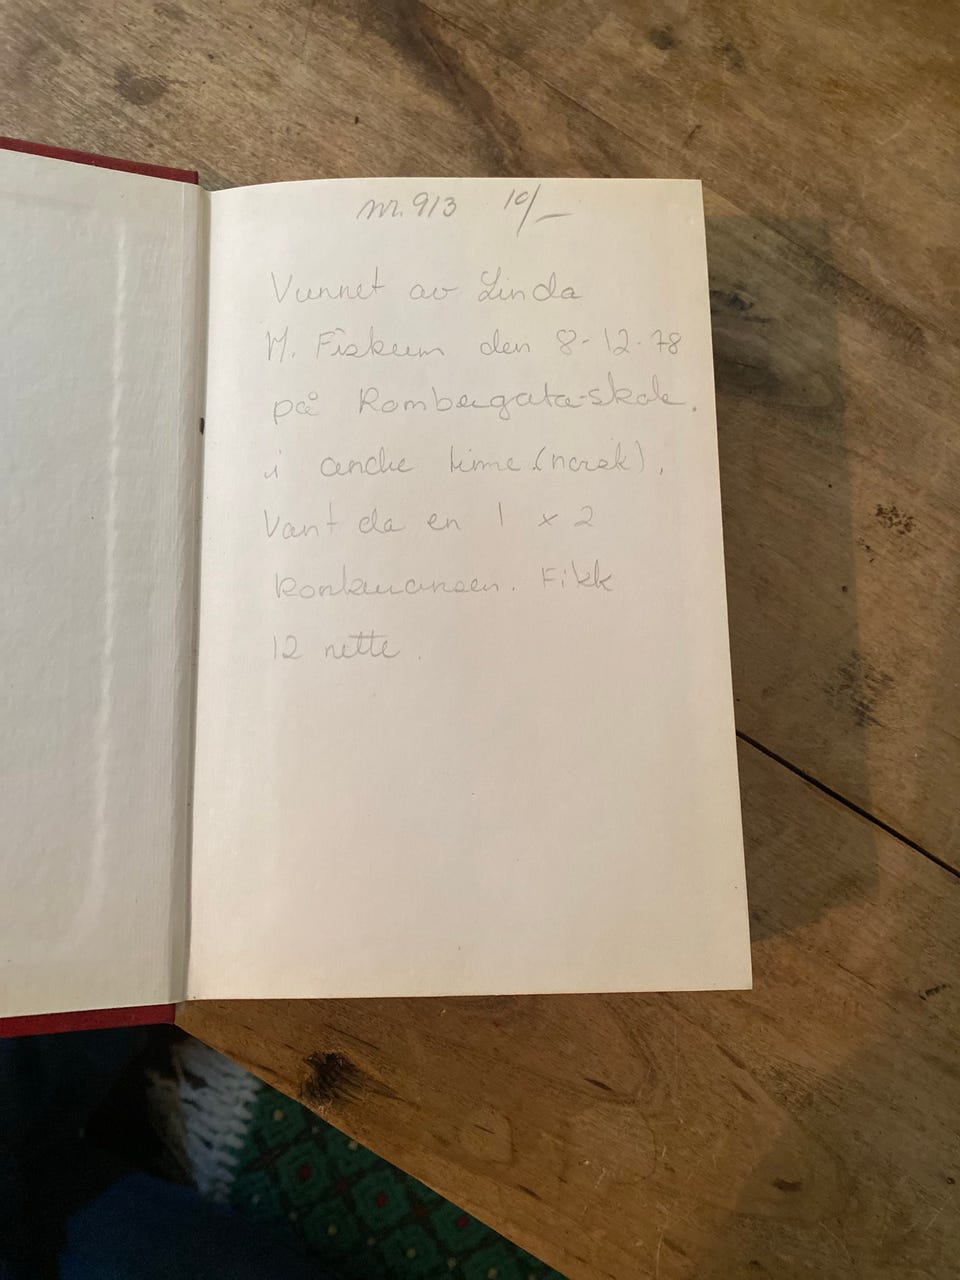 nr. 913 10/-
Vunnet av Linda
M. Fiskum den 8-12-78
på Rombergata-skole.
i andre time (norsk),
Vant da en 1 x 2
konkuransen. Fikk
12 rette.